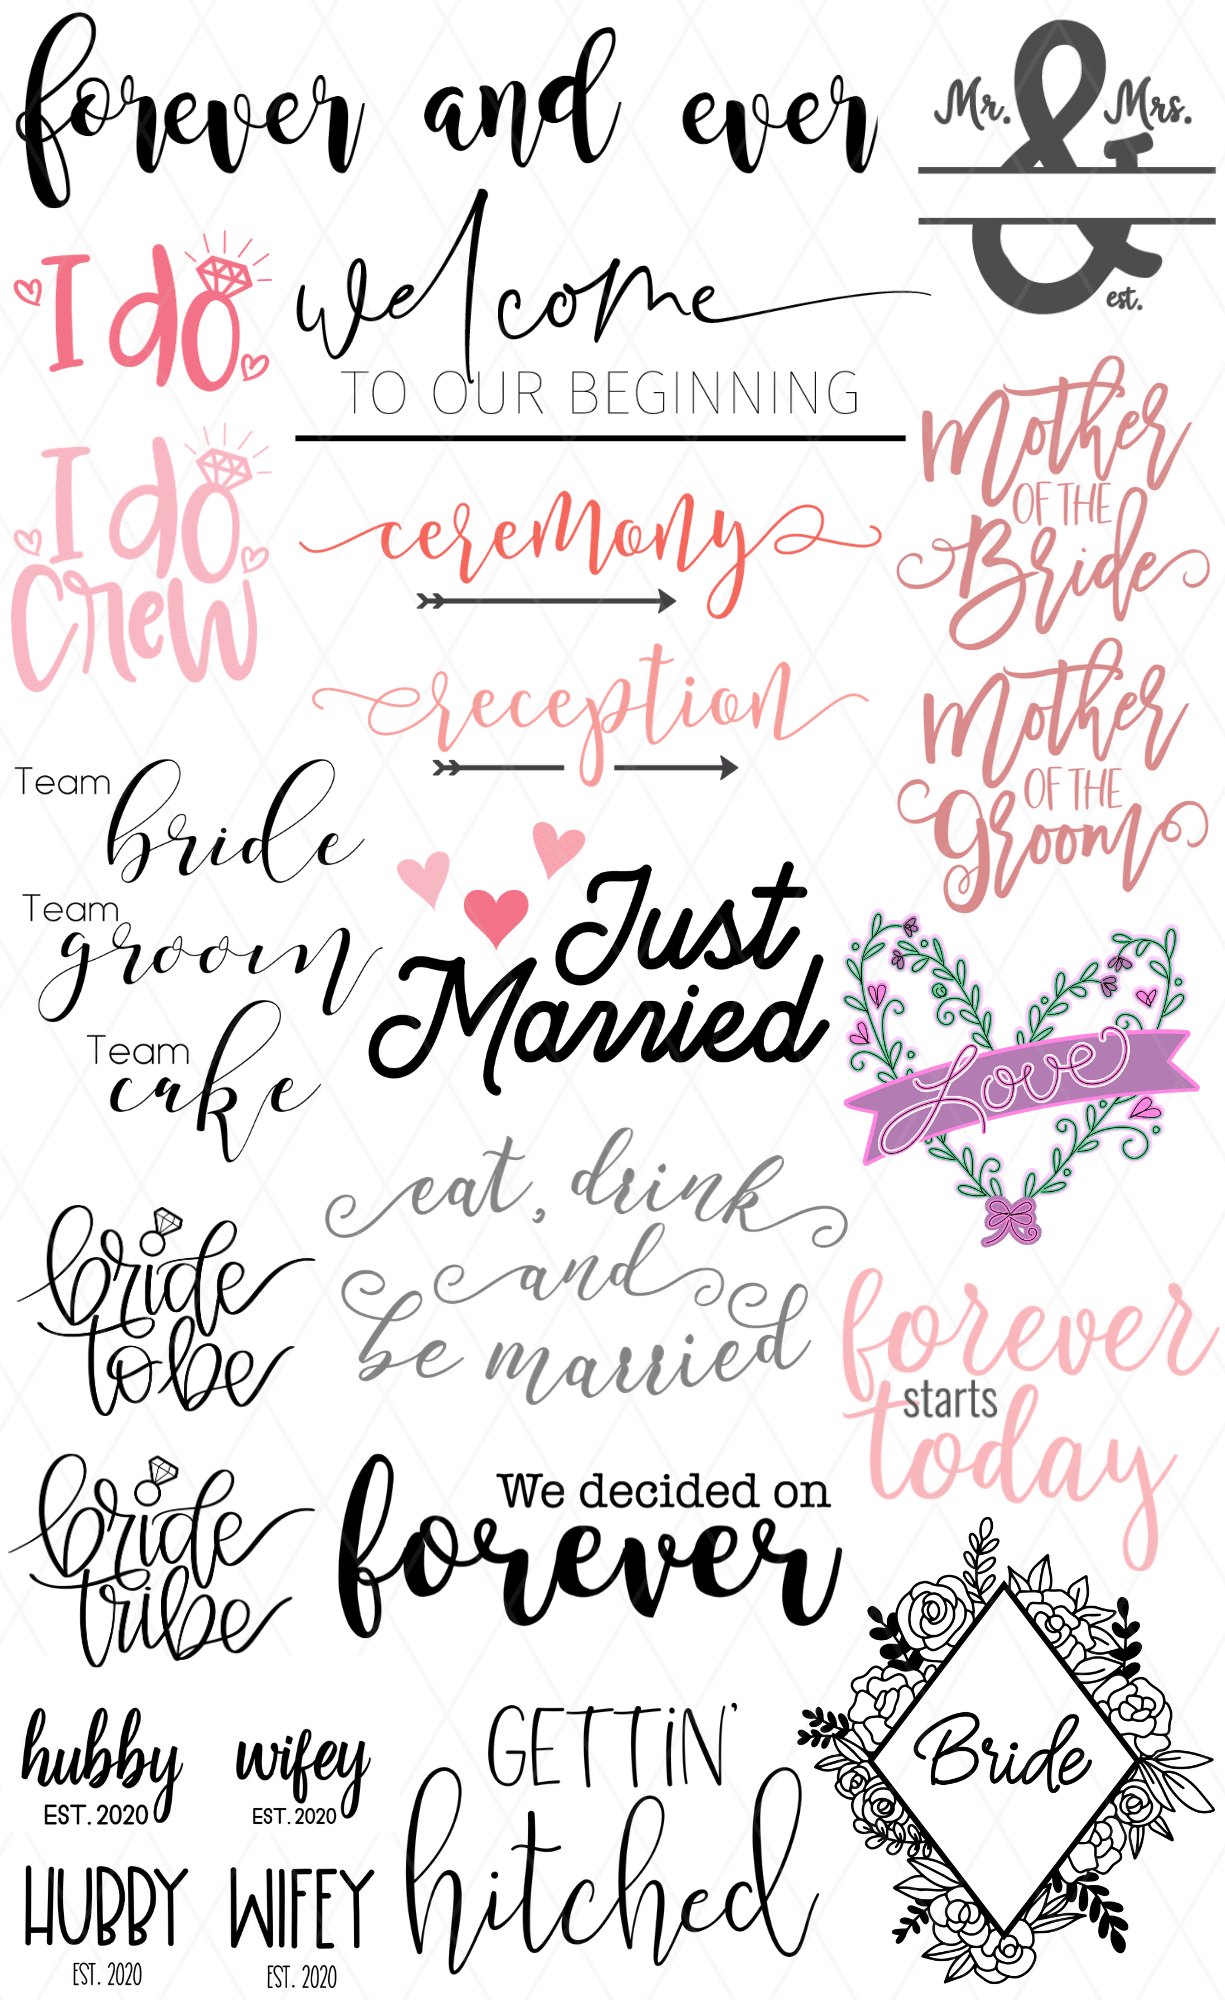 forever and ever
Mr. & Mrs.
est.
I do
welcome
TO OUR BEGINNING
I do
Crew
ceremony
reception
Mother
OF THE
Bride
Mother
OF THE
Groom
Team
bride
Team
groom
Team
cake
Just
Married
Love
eat, drink
and
be married
bride
to be
forever
starts
today
bride
tribe
We decided on
forever
Bride
hubby
EST. 2020
wifey
EST. 2020
GETTIN'
hitched
HUBBY
EST. 2020
WIFEY
EST. 2020